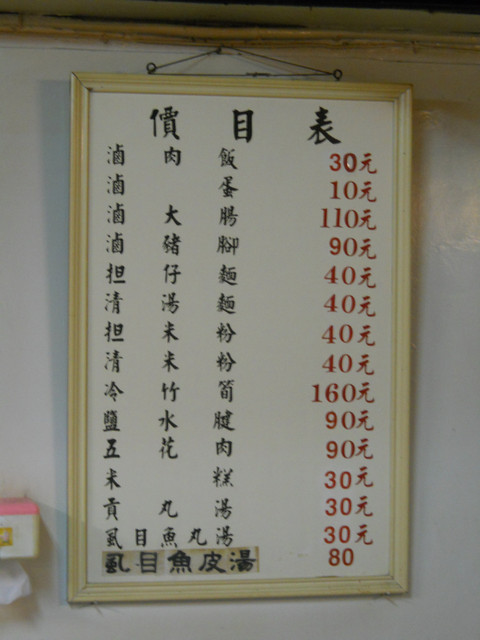 價目表
滷肉飯 30元
滷蛋 10元
滷大腸 110元
滷豬腳 90元
担仔麵 40元
清湯麵 40元
担米粉 40元
清米粉 40元
冷竹筍 160元
鹽水腱 90元
五花肉 90元
米糕 30元
貢丸湯 30元
虱目魚丸湯 30元
虱目魚皮湯 80